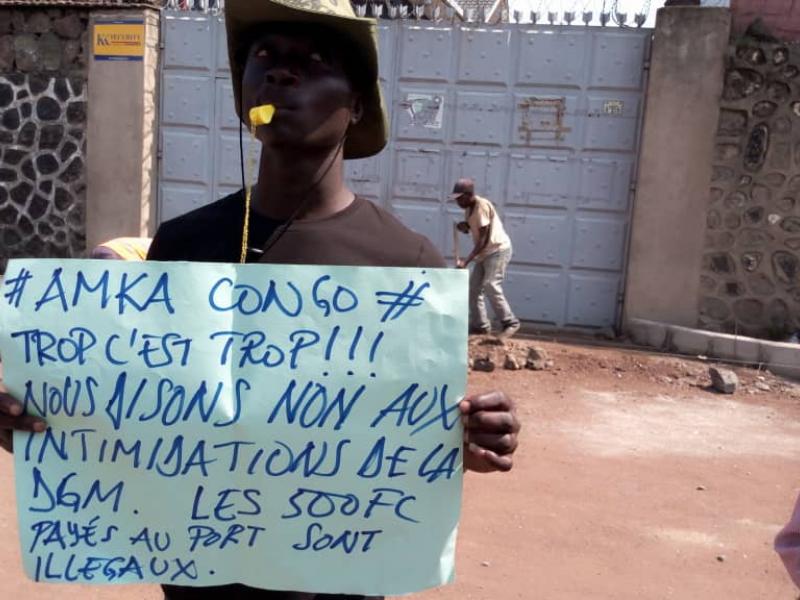 KK SECURITY
# AMKA CONGO #
TROP C'EST TROP!!!
NOUS DISONS NON AUX
INTIMIDATIONS DE LA
DGM. LES 500FC
PAYÉS AU PORT SONT
ILLEGAUX.